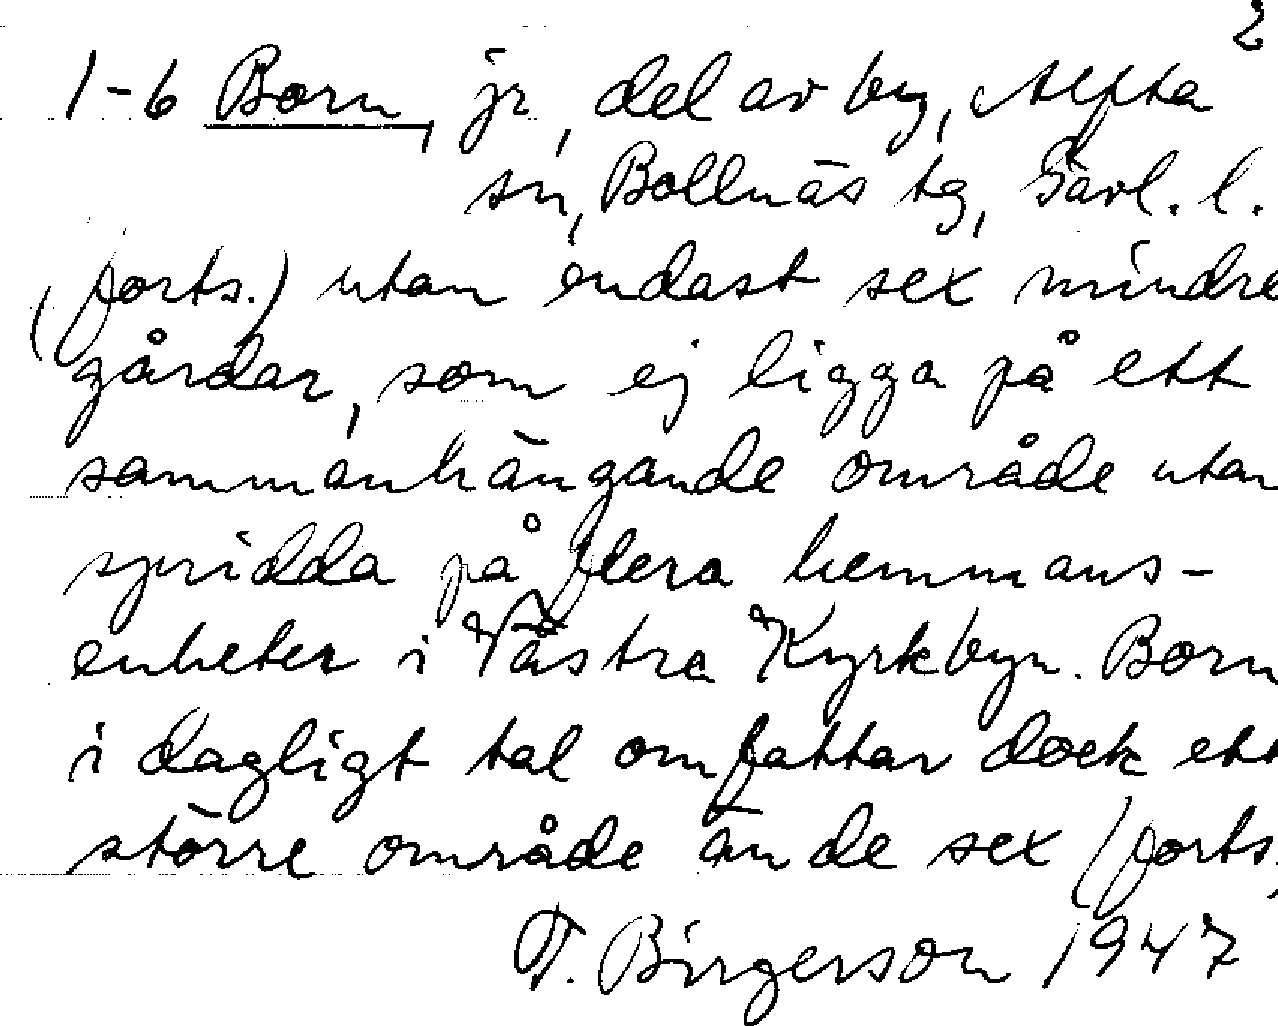 2
1-6 Born, jr, del av by, Alfta
sn, Bollnäs tg, Gävl. l.
(forts.) utan endast sex mindre
gårdar, som ej ligga på ett
sammanhängande område utan
spridda på flera hemmans-
enheter i Västra Kyrkbyn. Born
i dagligt tal omfattar dock ett
större område än de sex (forts.
T. Birgerson 1947